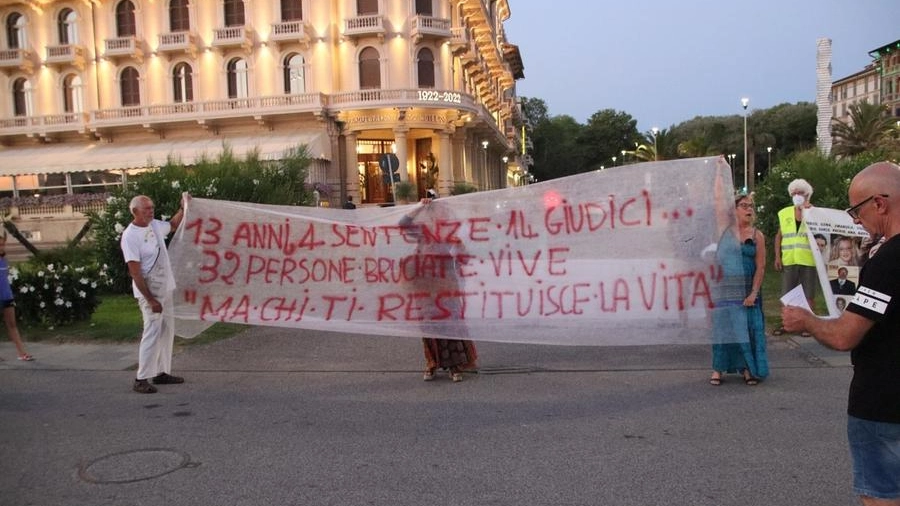 1922-2022
13 ANNI, 4 SENTENZE·14 GIUDICI...
32 PERSONE·BRUCIATE·VIVE
"MA·CHI·TI·RESTITUISCE·LA VITA"